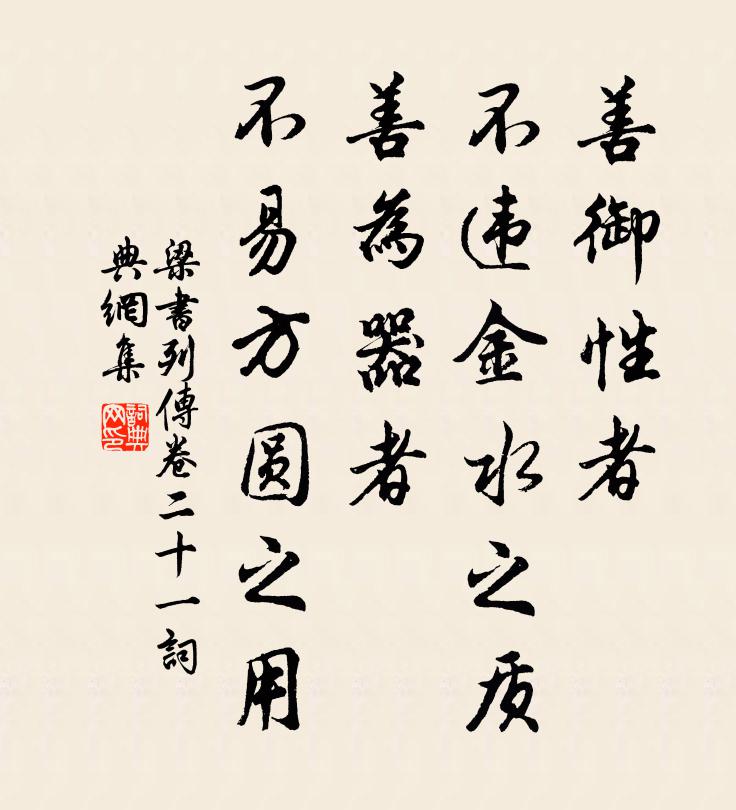 善御性者
不违金水之质
善為器者
不易方圆之用
梁書列傳卷二十一詞
典網集
詞典网印